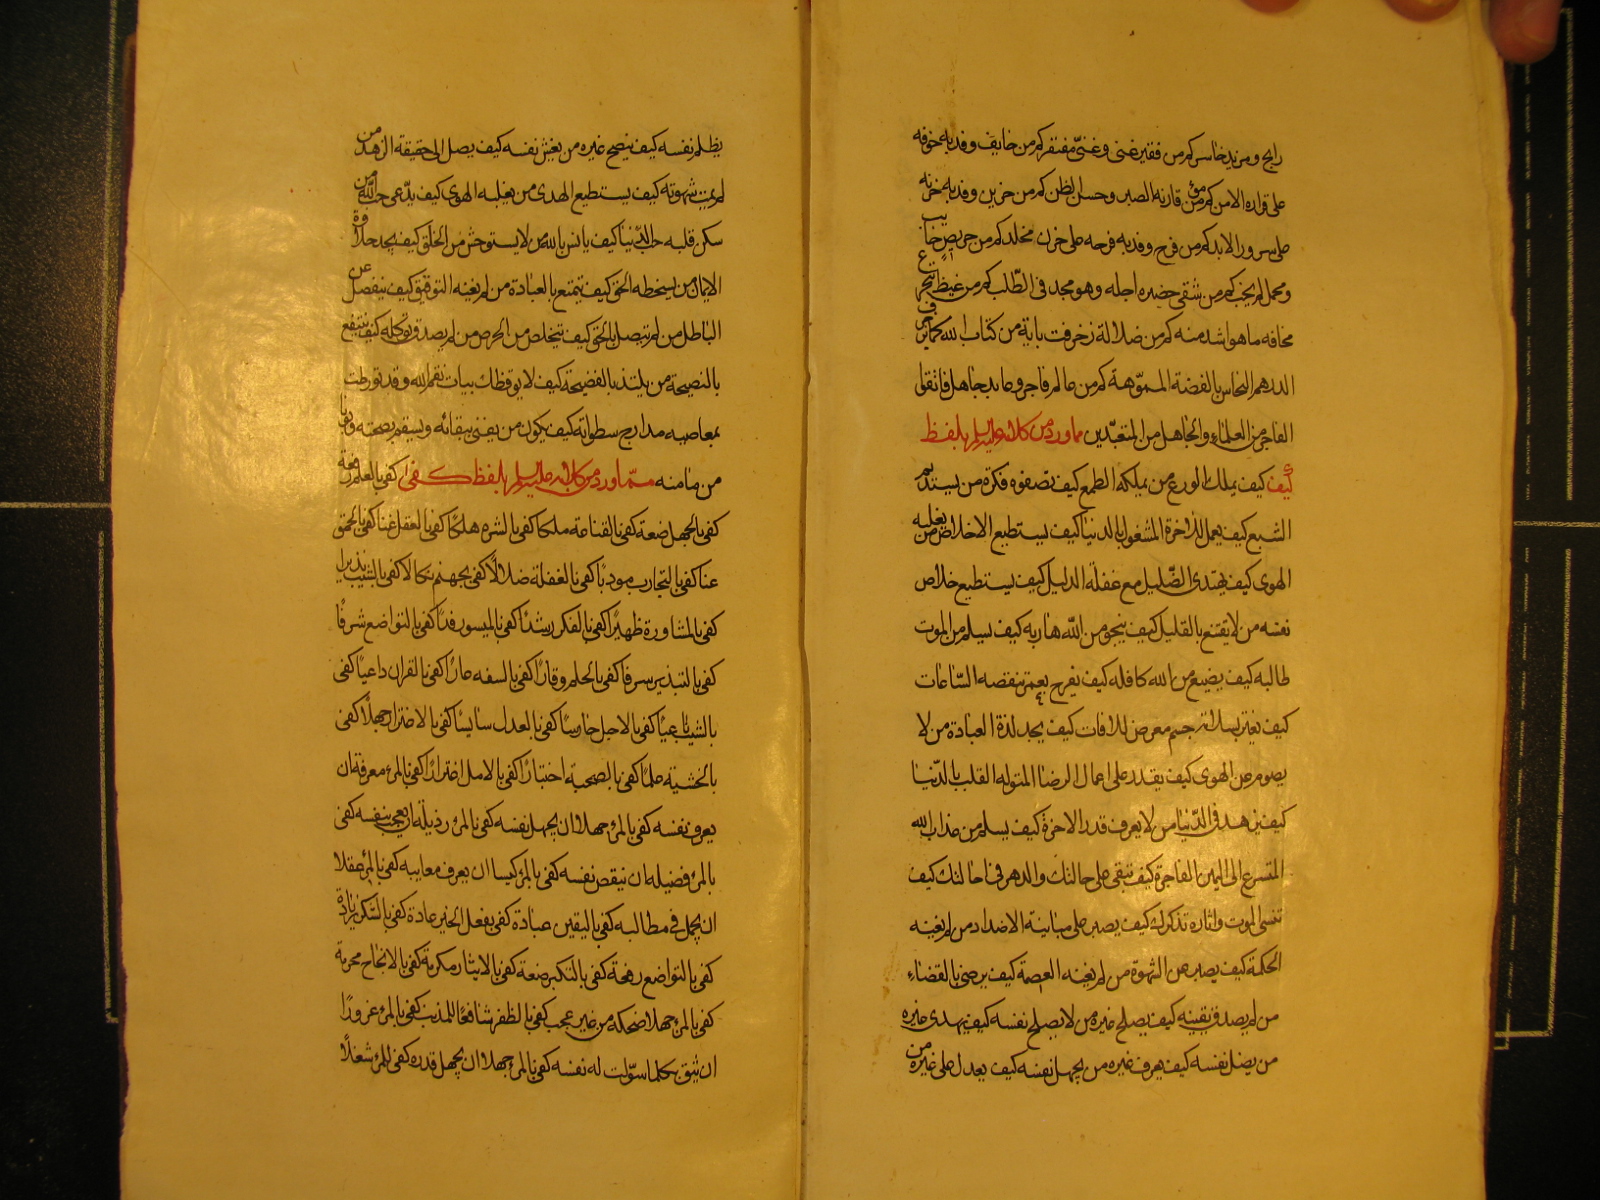 رابح ومزيد خاسر كم من فقير غنى وغنىّ مفتقر كم من خايف وفد به خوفه
على قراره الامن كم من مومن قارنه الصبر وحسن الظن كم من حزين وفد به حزنه
على سرور الابد كم من فرح وفد به فرحه على حزن مخلد كم من حريص خايب
ومجمل لم يخب كم من شقى حضره اجله وهو مجد فى الطّلب كم من غيظ تجرع
مخافه ما هو اشد منه كم من ضلالة زخرفت باية من كتاب الله كما يزخرف
الدرهم النحاس بالفضة المموّهة كم من عالم فاجر وعابد جاهل فاتقوا
الفاجر من العلماء والجاهل من المتعبّدين مما ورد من كلامه عليه السلم بلفظ
كيف كيف يملك الورع من يملكه الطمع كيف تصفو فكرة من يستديم
الشبع كيف يعمل للاخرة المشغول بالدنيا كيف يستطيع الاخلاص من يغلبه
الهوى كيف يهتدى الضّليل مع غفلة الدليل كيف يستطيع خلاص
نفسه من لا يقتنع بالقليل كيف ينجو من اللّه هاربه كيف يسلم من الموت
طالبه كيف يضيع من الله كافله كيف يفرح بعمر تنقصه السّاعات
كيف يغتر بسلامة جسم معرض للافات كيف يجد لذة العبادة من لا
يصوم عن الهوى كيف يقدر على اعمال الرضا المتوله القلب بالدّنيا
كيف يزهد فى الدّنيا من لا يعرف قدر الاخرة كيف يسلم من عذاب الله
المتسرع الى اليمين الفاجرة كيف تبقى على حالتك والدهر فى احالتك كيف
تنسى الموت واثاره تذكرك كيف يصبر على مباينة الاضداد من لم يعنه
الحكمة كيف يصبر عن الشهوة من لم يعنه العصمة كيف يرضى بالقضاء
من لم يصدق يقينه كيف يصلح غيره من لا يصلح نفسه كيف يهدى غيره
من يضل نفسه كيف يعرف غيره من يجهل نفسه كيف يعدل على غيره من
يظلم نفسه كيف ينصح غيره من يغش نفسه كيف يصل الى حقيقة الزهد من
لم يمت شهوته كيف يستطيع الهدى من يغلبه الهوى كيف يدّعى حب اللّه من
سكن قلبه حب الدّنيا كيف يانس بالله من لا يستوحش من الخلق كيف يجد حلاوة
الايمان من يسخطه الحق كيف يتمتع بالعبادة من لم يعنه التوفيق كيف ينفصل عن
الباطل من لم يتصل بالحق كيف يتخلص من الحرص من لم يصدق توكله كيف ينتفع
بالنصيحة من يلتذ بالفضيحة كيف لا يوقظك بيات نقم الله وقد تورطت
بمعاصيه مدارج سطواته كيف يكون من يفنى ببقائه ويسقم بصحته ويوتا
من مامنه ممّا ورد من كلامه عليه السلم بلفظ كفى كفى بالعلم رفعة
كفى بالجهل ضعة كفى بالقناعة ملكا كفى بالشره هلكا كفى بالعقل غنا كفى بالحمق
عنا كفى بالتجارب مودبا كفى بالغفلة ضلالًا كفى بجهنم نكالا كفى بالشيب نذيرا
كفى بالمشاورة ظهيرًا كفى بالفكر رشدًا كفى بالميسور رفدًا كفى بالتواضع شرفًا
كفى بالتبذير سرفا كفى بالحلم وقارًا كفى بالسفه عارًا كفى بالقران داعيًا كفى
بالشيب ناعيًا كفى بالاجل حارسًا كفى بالعدل سايسًا كفى بالاغترار جهلًا كفى
بالخشية علمًا كفى بالصحبة اختبارًا كفى بالامل اغترارًا كفى بالمرء معرفة ان
يعرف نفسه كفى بالمرء جهلا ان يجهل نفسه كفى بالمرء رذيلة ان يعجب بنفسه كفى
بالمرء فضيله ان ينقص نفسه كفى بالمرء كيسا ان يعرف معايبه كفى بالمرء عقلا
ان يجمل فى مطالبه كفى باليقين عبادة كفى بفعل الخير عادة كفى بالشكر زيادة
كفى بالتواضع رفعة كفى بالتكبر ضعة كفى بالايثار مكرمة كفى بالالحاح محرمة
كفى بالمرء جهلا ضحكه من غير عجب كفى بالظفر شافعا للمذنب كفى بالمرء غرورًا
ان يثق بكلما سوّلت له نفسه كفى بالمرء جهلا ان يجهل قدره كفى للمرء شغلًا